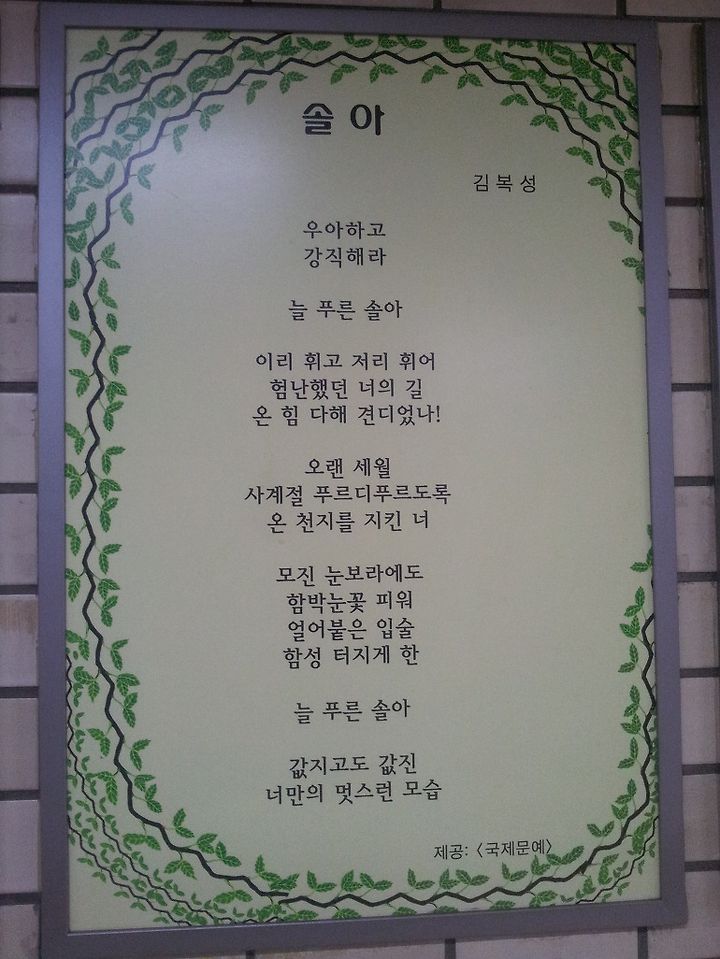 솔아
김복성
우아하고
강직해라
늘 푸른 솔아
이리 휘고 저리 휘어
험난했던 너의 길
온 힘 다해 견디었나!
오랜 세월
사계절 푸르디푸르도록
온 천지를 지킨 너
모진 눈보라에도
함박눈꽃 피워
얼어붙은 입술
함성 터지게 한
늘 푸른 솔아
값지고도 값진
너만의 멋스런 모습
제공: 〈국제문예〉